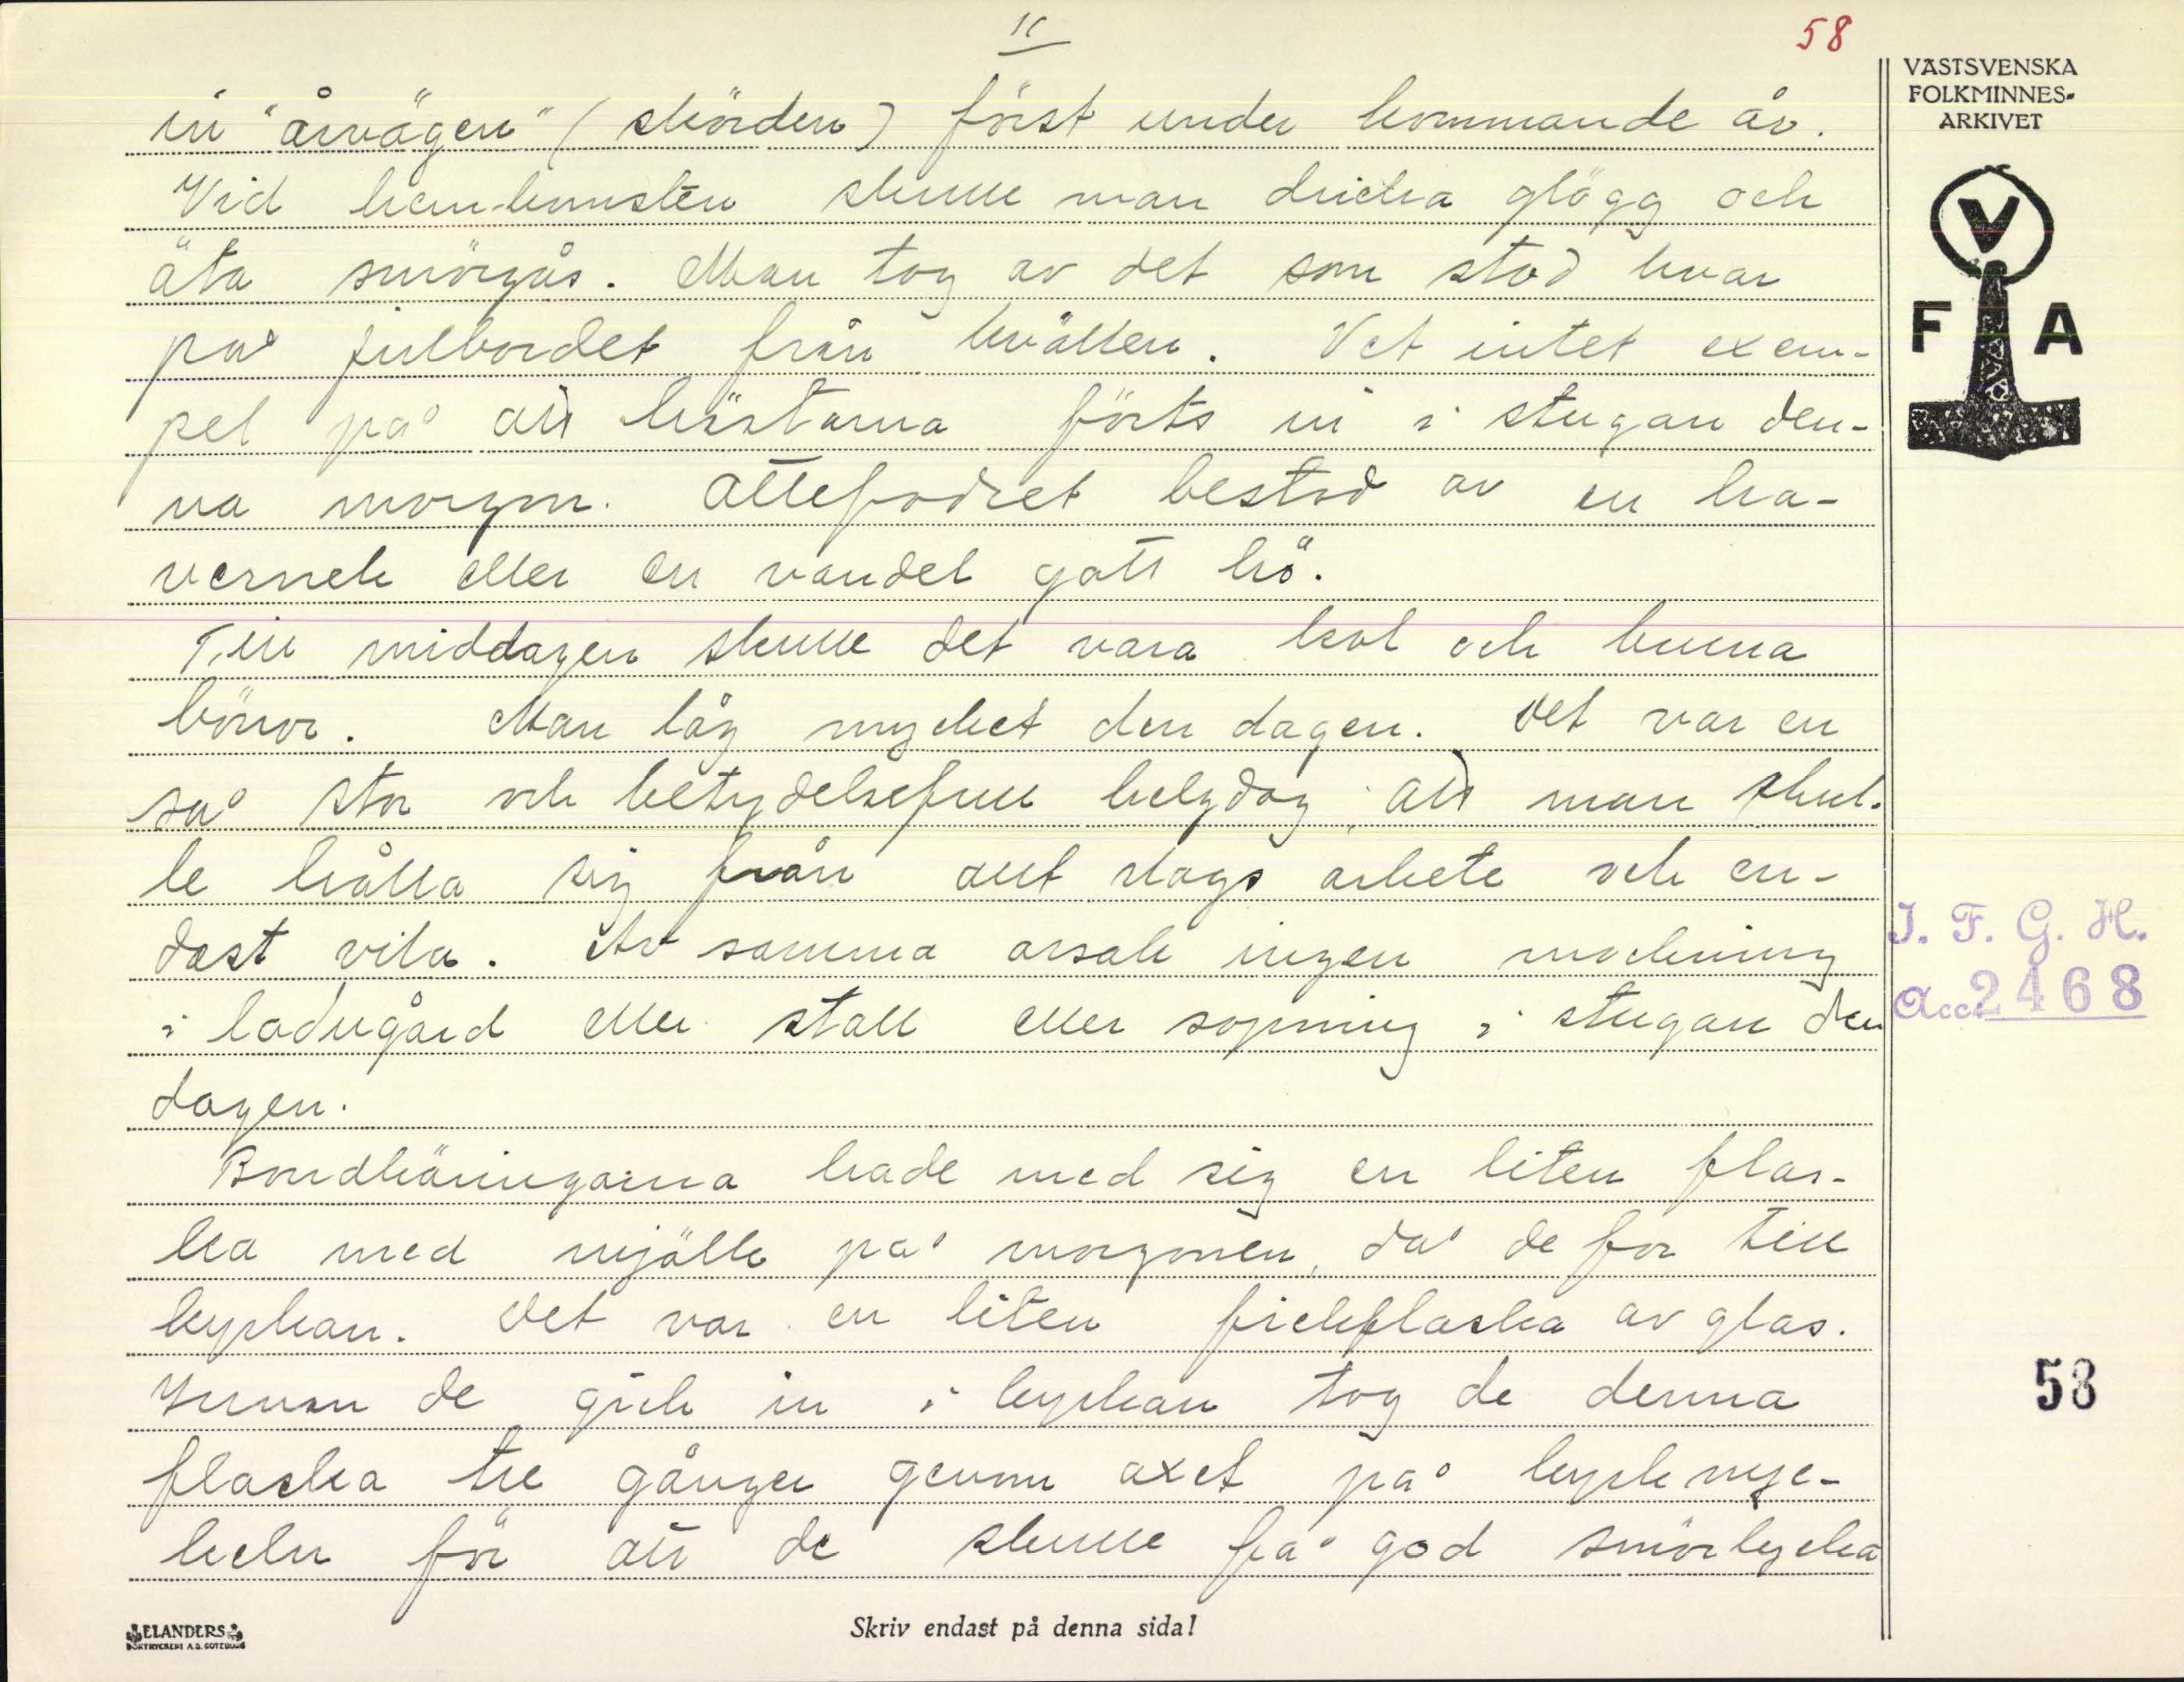 11
58
in "årvägen" (skörden) först under kommande år.
Vid hemkomsten skulle man dricka glögg och
äta smörgås. Man tog av det som stod kvar
på julbordet från kvällen. Vet intet exem-
pel på att hästarna förts in i stugan den-
na morgon. Ottefodret bestod av en ha-
vernek eller en vandel gott hö.
Till middagen skulle det vara kål och bruna
bönor. Man låg mycket den dagen. Det var en
så stor och betydelsefull helgdag, att man skul-
le hålla sig från allt slags arbete och en-
dast vila. Av samma orsak ingen mockning
i ladugård eller stall eller sopning i stugan den
dagen.
Bondkäringarna hade med sig en liten flas-
ka med mjölk på morgonen, då de for till
kyrkan. Det var en liten fickflaska av glas.
Innan de gick in i kyrkan tog de denna
flaska tre gånger genom axet på kyrknyc-
keln för att de skulle få god smörlycka
VÄSTSVENSKA
FOLKMINNES-
ARKIVET
V
F A
I. F. G. H.
Acc. 2468
58
ELANDERS
BOKTRYCKERI A.B. GÖTEBORG
Skriv endast på denna sida!